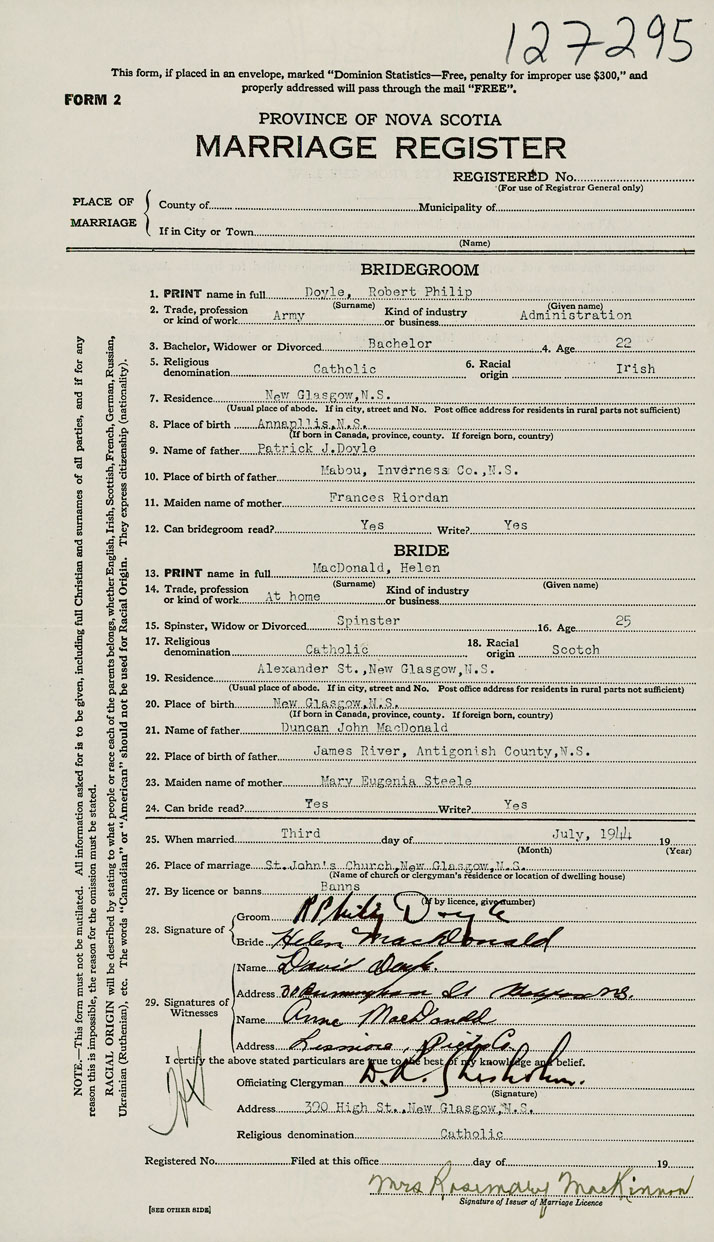 127295
This form, if placed in an envelope, marked “Dominion Statistics—Free, penalty for improper use $300,” and
properly addressed will pass through the mail “FREE”.
FORM 2
PROVINCE OF NOVA SCOTIA
MARRIAGE REGISTER
REGISTERED No.
(For use of Registrar General only)
PLACE OF MARRIAGE
County of Municipality of
If in City or Town
(Name)
BRIDEGROOM
1. PRINT name in full Doyle, Robert Philip
(Surname) (Given name)
2. Trade, profession or kind of work Army Kind of industry or business Administration
3. Bachelor, Widower or Divorced Bachelor 4. Age 22
5. Religious denomination Catholic 6. Racial origin Irish
7. Residence New Glasgow,N.S.
(Usual place of abode. If in city, street and No. Post office address for residents in rural parts not sufficient)
8. Place of birth Annapllis,N.S.
(If born in Canada, province, county. If foreign born, country)
9. Name of father Patrick J.Doyle
10. Place of birth of father Mabou, Inverness Co.,N.S.
11. Maiden name of mother Frances Riordan
12. Can bridegroom read? Yes Write? Yes
BRIDE
13. PRINT name in full MacDonald, Helen
(Surname) (Given name)
14. Trade, profession or kind of work At home Kind of industry or business
15. Spinster, Widow or Divorced Spinster 16. Age 25
17. Religious denomination Catholic 18. Racial origin Scotch
19. Residence Alexander St.,New Glasgow,N.S.
(Usual place of abode. If in city, street and No. Post office address for residents in rural parts not sufficient)
20. Place of birth New Glasgow,N.S.
(If born in Canada, province, county. If foreign born, country)
21. Name of father Duncan John MacDonald
22. Place of birth of father James River, Antigonish County,N.S.
23. Maiden name of mother Mary Eugenia Steele
24. Can bride read? Yes Write? Yes
25. When married Third day of July, 1944 19
(Month) (Year)
26. Place of marriage St.John's Church,New Glasgow,N.S.
(Name of church or clergyman's residence or location of dwelling house)
27. By licence or banns Banns
(If by licence, give number)
28. Signature of
Groom R Philip Doyle
Bride Helen MacDonald
29. Signatures of Witnesses
Name David Doyle.
Address St N.S.
Name Anne MacDonald
Address Lismore, Pictou Co.
I certify the above stated particulars are true to the best of my knowledge and belief.
Officiating Clergyman D. R. Chisholm.
(Signature)
Address 300 High St.,New Glasgow,N.S.
Religious denomination Catholic
Registered No. Filed at this office day of 19
Mrs Rosemary MacKinnon
Signature of Issuer of Marriage Licence
[SEE OTHER SIDE]
NOTE.—This form must not be mutilated. All information asked for is to be given, including full Christian and surnames of all parties, and if for any
reason this is impossible, the reason for the omission must be stated.
RACIAL ORIGIN will be described by stating to what people or race each of the parents belongs, whether English, Irish, Scottish, French, German, Russian,
Ukrainian (Ruthenian), etc. The words “Canadian” or “American” should not be used for Racial Origin. They express citizenship (nationality).